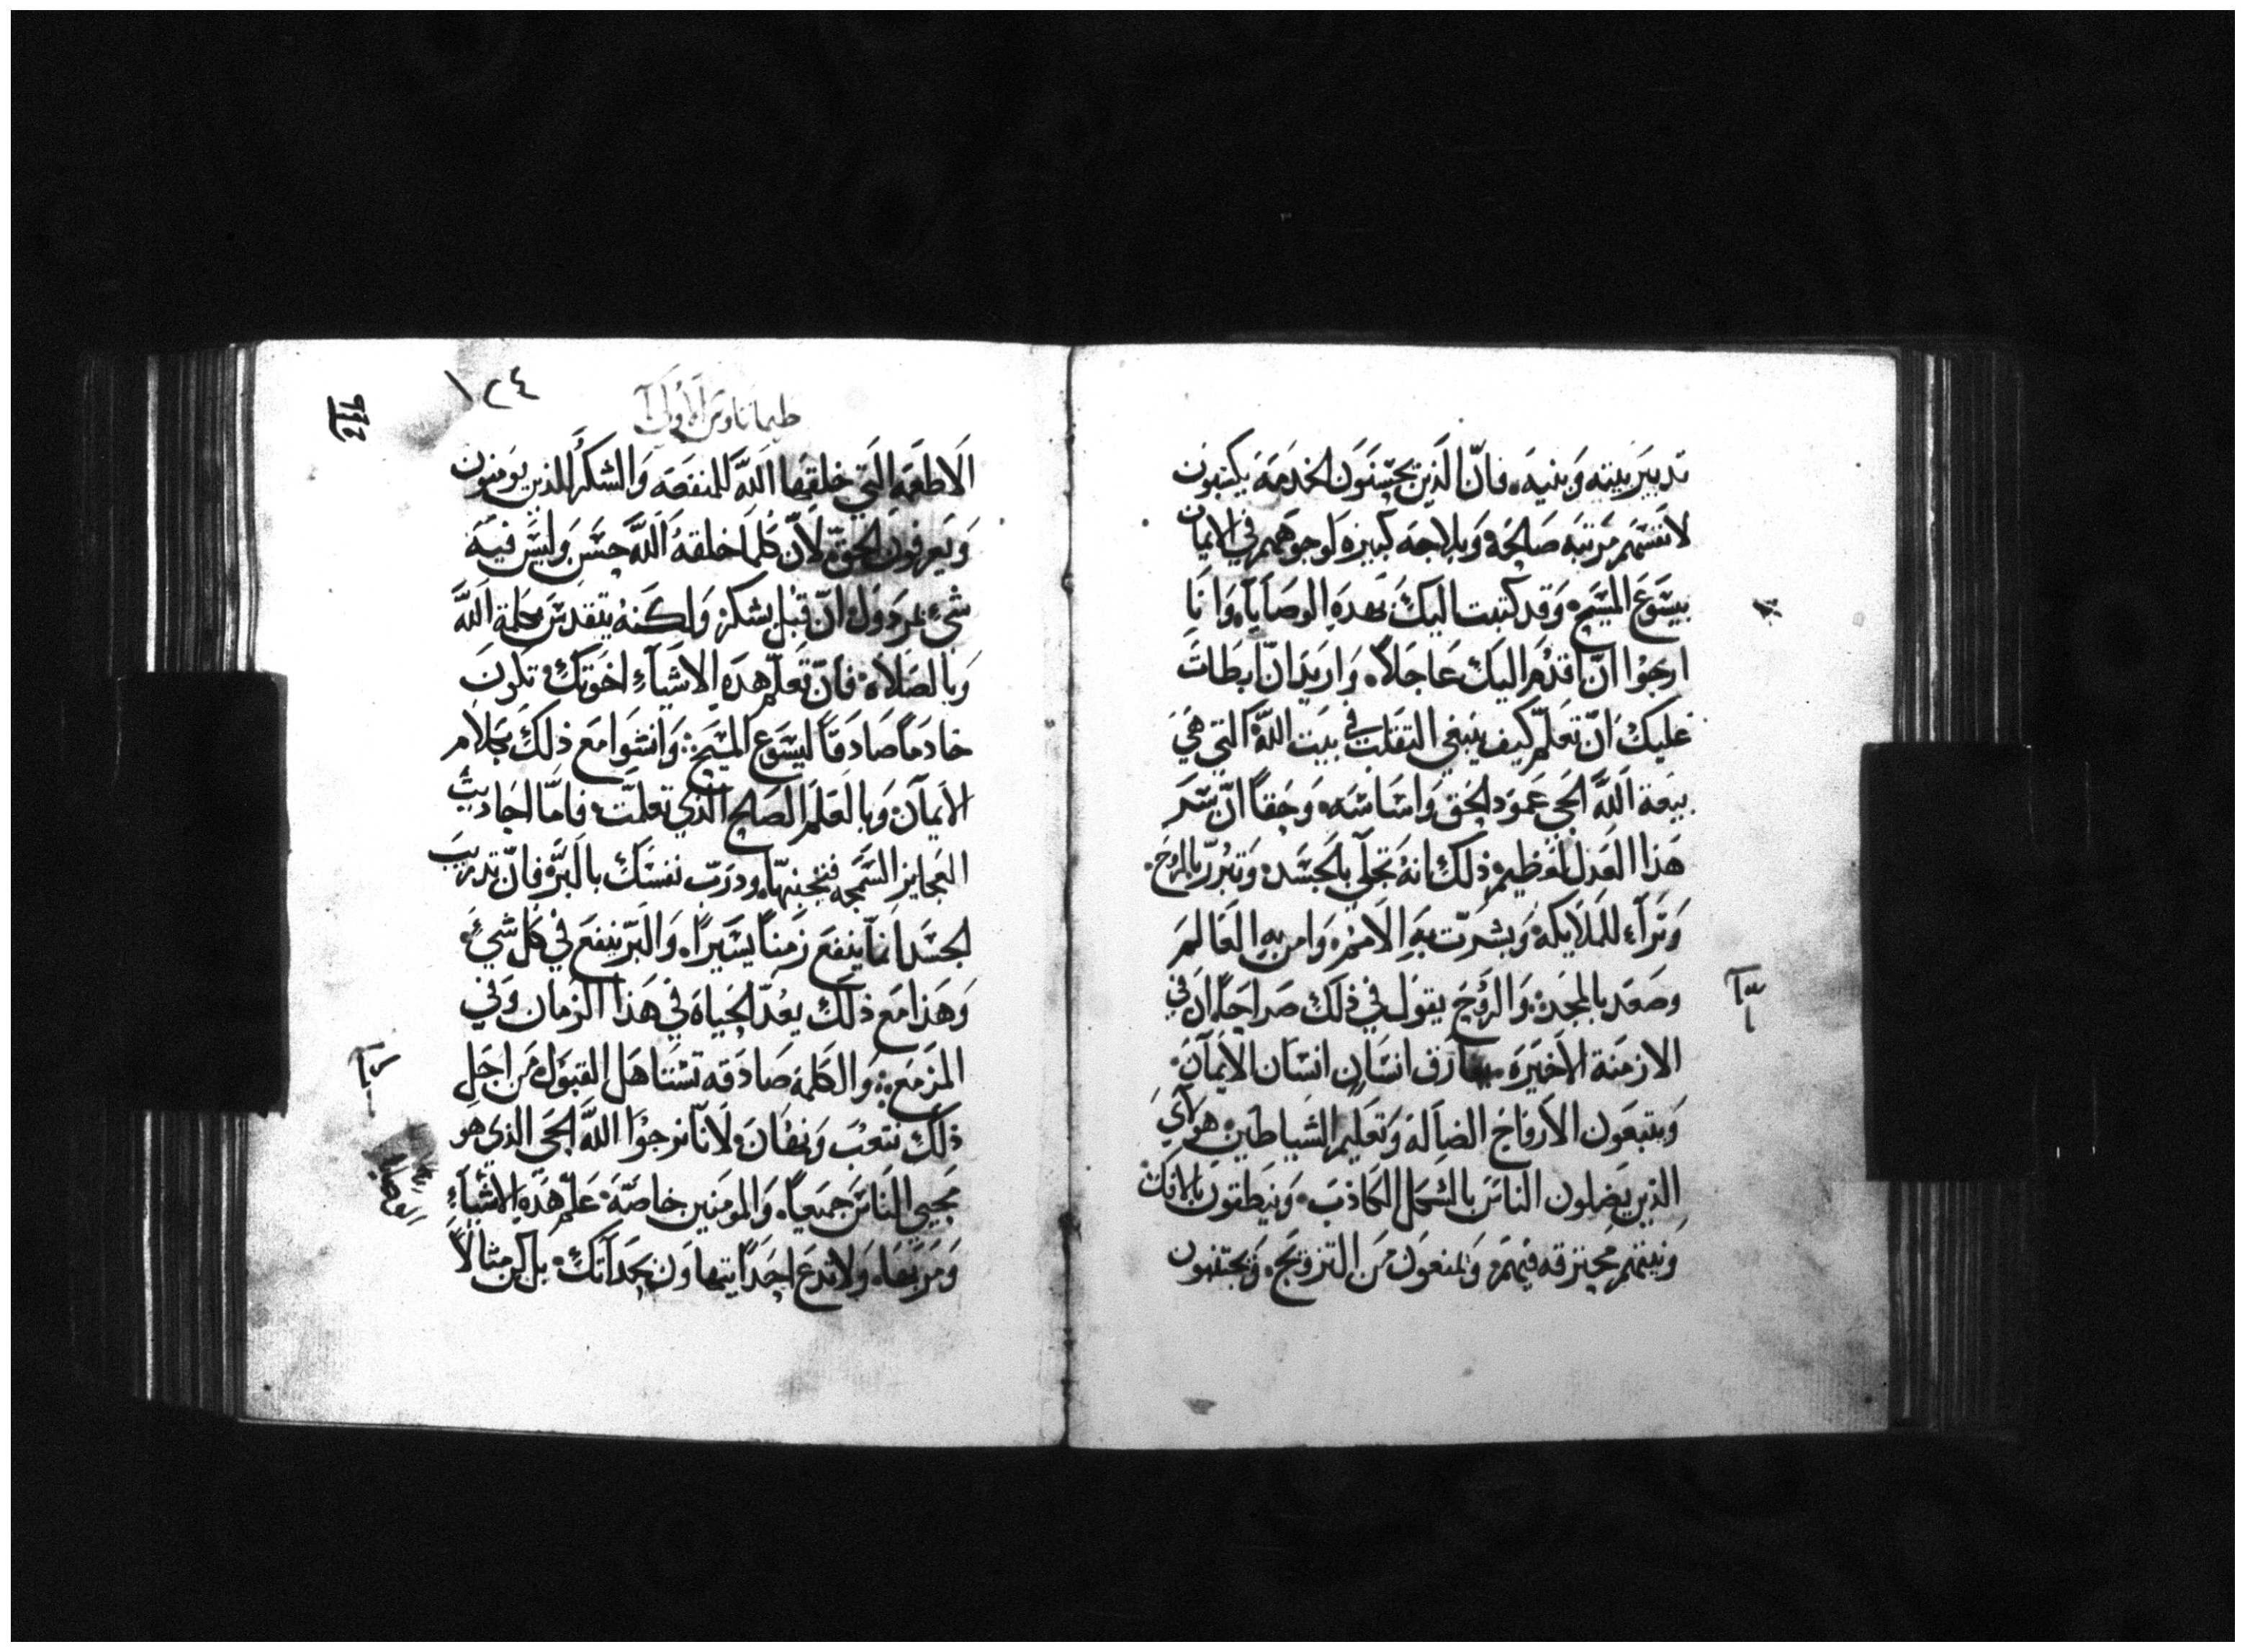 تدبير بيته وبنيه. فانّ الذين يحسنون الخدمة يكتبون
لانفسهم مرتبه صالحة وبلاجه كبيره لوجوههم في الايمان
بيسوع المسيح. وقد كتبت اليك بهده الوصايا وانا
ارجوا انّ اقدم اليك عاجلاً. واريد انّ ابطات
عليك انّ تعلم كيف ينبغي التقلب في بيت اللّه التي هي
بيعة اللّه الحي عمود الحق واساسه. وحقاً انّ سر
هذا العدل لعظيم. ذلك انه تجلي بالجسد. وتبرر بالروح.
وتراء للملايكة. وبشرت به الامم. وامن به العالم
وصعد بالمجد. والروح يقول في ذلك صراحاً ان في
الازمنة الاخيره يفارق انسان انسان الايمان.
ويتبعون الارواح الضالة وتعليم الشياطين. هواي
الذين يضلون الناس بالشكل الكاذب. وينطقون بالافك
ونيتهم محترقه فيهم. ويمنعون من التزويج. ويجتنبون
١٢٤
طيماتاوس الاولي
الاطعمه التي خلقها اللّه للمنفعه والشكر للذين يومنون
ويعرفون الحقّ. لانّ كلما خلقه اللّه حسن وليس فيه
شيء مردول انّ قبل بشكر. ولكنه يتقدس بكلمة اللّه
وبالصلاه. فانّ تعلم هده الاشياء اخوتك. تكون
خادماً صادقاً ليسوع المسيح: وانشوا مع ذلك بكلام
الايمان. وبالعلم الصالح الذي تعلمت. فامّا احاديث
العجايز السمجه فتجنبها. ودرب نفسك بالبرّ. فانّ تدريب
الجسد انما ينفع زمناً يسيراً. والبرّ ينفع في كل شيء.
وهذا مع ذلك يعدّ الحياه في هذا الزمان وفي
المزمع: والكلمه صادقه تستاهل القبول. من اجل
ذلك نتعب ونهان. لانا نرجوا اللّه الحي الذي هو
محيي الناس جميعاً. والمومنين خاصّة. علم هده الاشياء
ومر بها. ولا تدع احداً يتهاون بحداتك. بل كن مثالاً